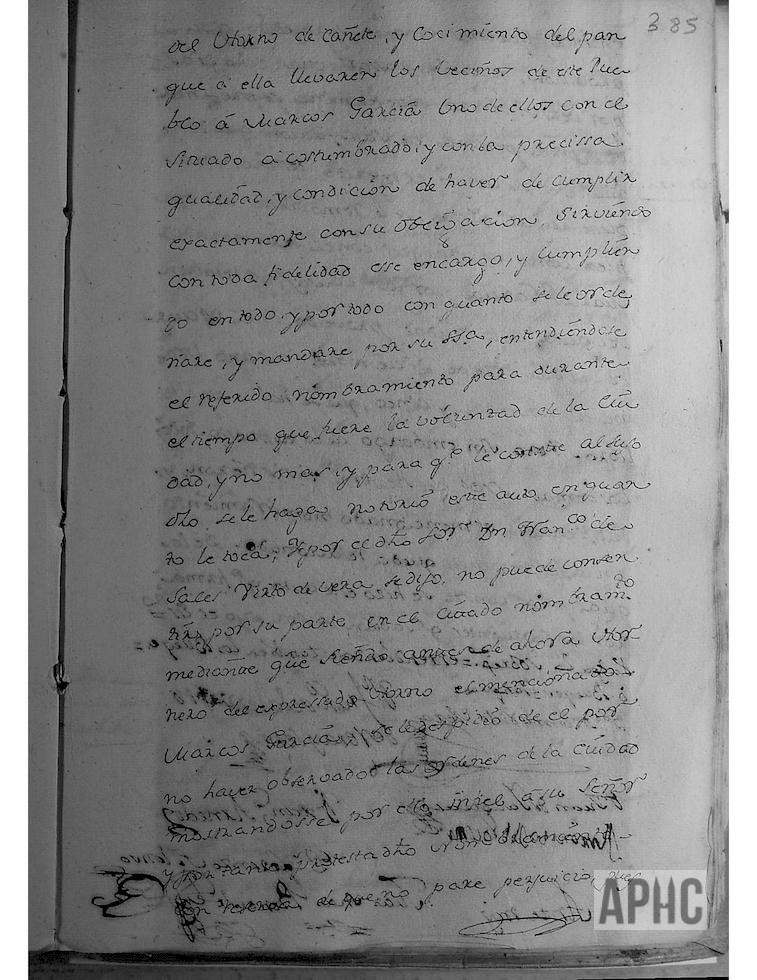 385
del Utorno de Cañete, y Cocimiento del pan
que á ella llevaren los Vecinos de este Pue
blo á Marcos Garcia Uno de ellos con el
Situado acostumbrado, y con la precissa
qualidad, y condicion de haver de Cumplir
exactamente con su Obligacion, Sirviendo
con toda fidelidad esse encargo, y Cumplien
do en todo, y por todo con quanto se le orde
nare, y mandare por su Ssa, entendiendose
el referido nombramiento para durante
el tiempo que fuere la voluntad de la Ciu
dad, y no mas, y para qe le conste al
dho se le haga notorio este auto en quan
to le toca; Y por el dho Sor Dn Franco de
Sales Vixto de vera se dijo, no puede consen
tir por su parte en el Citado nombramto
mediante que siendo antes de ahora Utor
nero del expressado Utorno el mencionado
Marcos Garcia se le despidió de el por
no haver observado las ordenes de la Ciudad
mostrandosse por ello infiel a su Señor
y por tanto protesta dho Nombramiento
de que no, pare perjuicio,
APHC